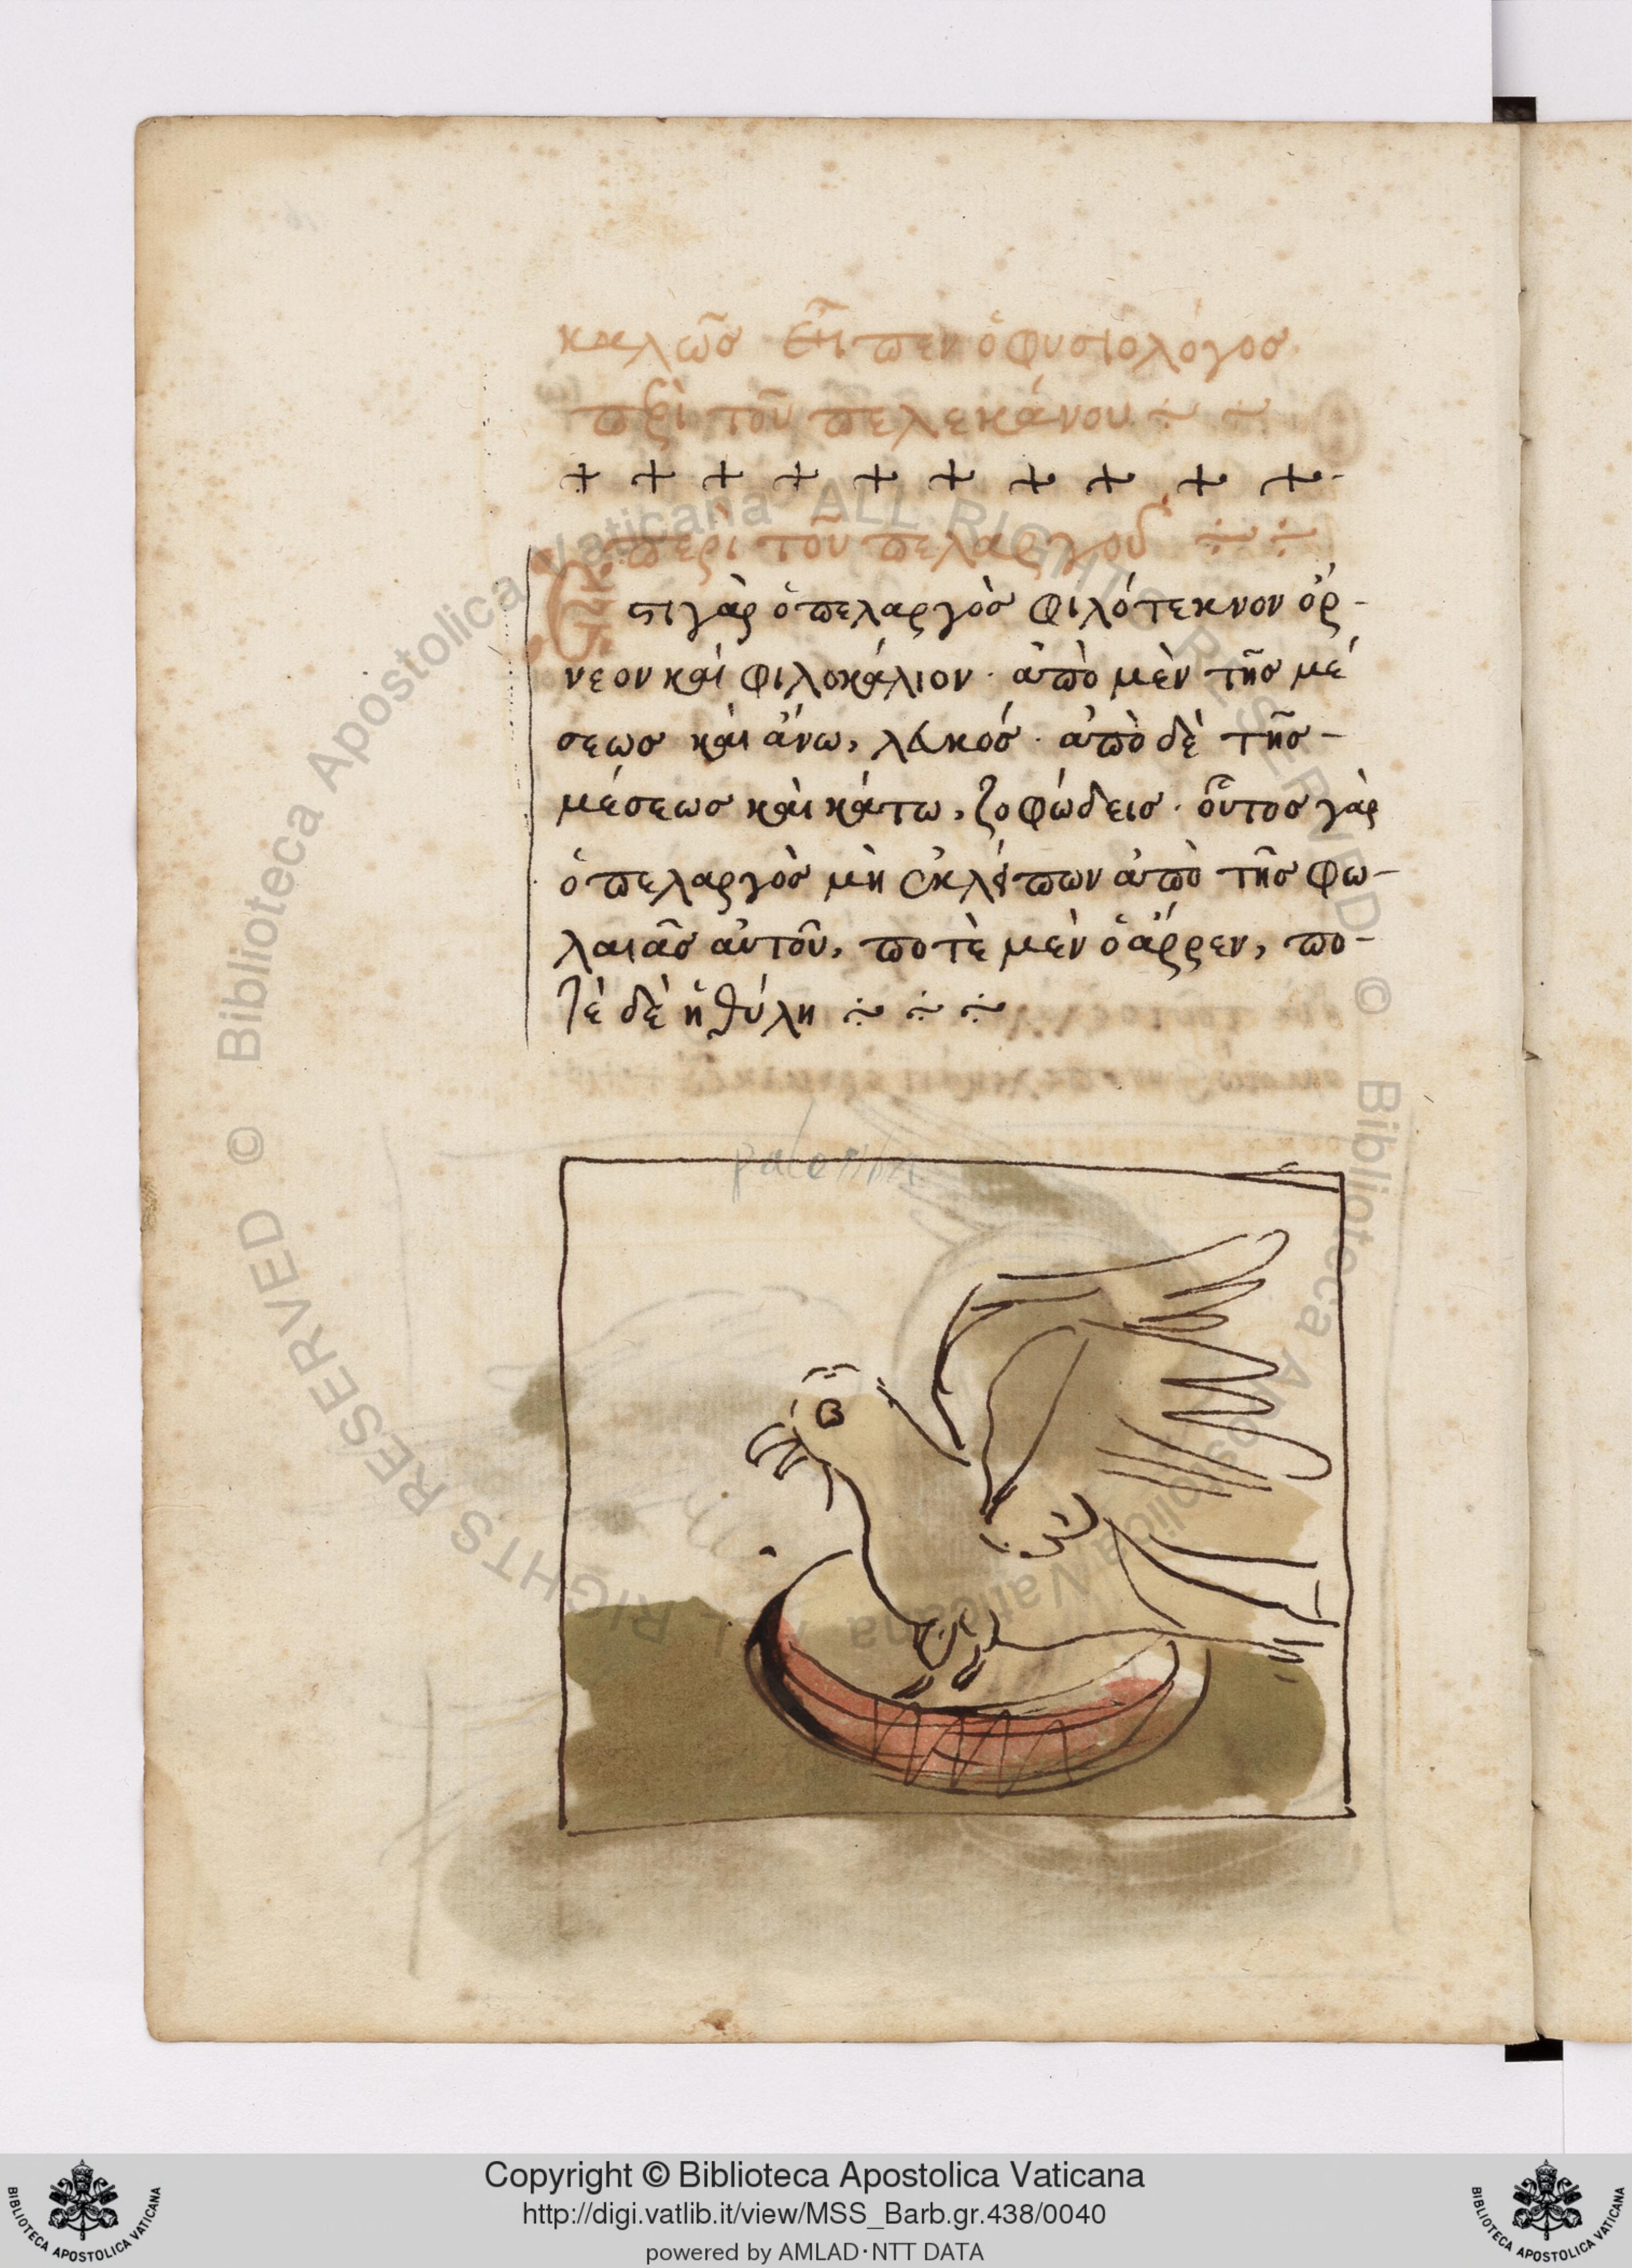 καλῶς εἶπεν ὁ φυσιολόγος
περὶ τοῦ πελεκάνου
+ + + + + + + + + +
περὶ τοῦ πελαργοῦ
Ἔστι γὰρ ὁ πελαργὸς φιλότεκνον ὄρ-
νεον καὶ φιλοκάλιον · ἀπὸ μὲν τῆς μέ
σεως καὶ ἄνω, λευκός · ἀπὸ δὲ τῆς -
μέσεως καὶ κάτω, ζοφώδεις · οὗτος γὰρ
ὁ πελαργὸς μὴ ἐκλείπων ἀπὸ τῆς φω-
λαιᾶς αὐτοῦ, ποτὲ μὲν ὁ ἄρρεν, πο-
τὲ δὲ ἡ θύλη
Copyright © Biblioteca Apostolica Vaticana
http://digi.vatlib.it/view/MSS_Barb.gr.438/0040
powered by AMLAD·NTT DATA
BIBLIOTECA APOSTOLICA VATICANA
BIBLIOTECA APOSTOLICA VATICANA
© Biblioteca Apostolica Vaticana ALL RIGHTS RESERVED © Biblioteca Apostolica Vaticana ALL RIGHTS RESERVED